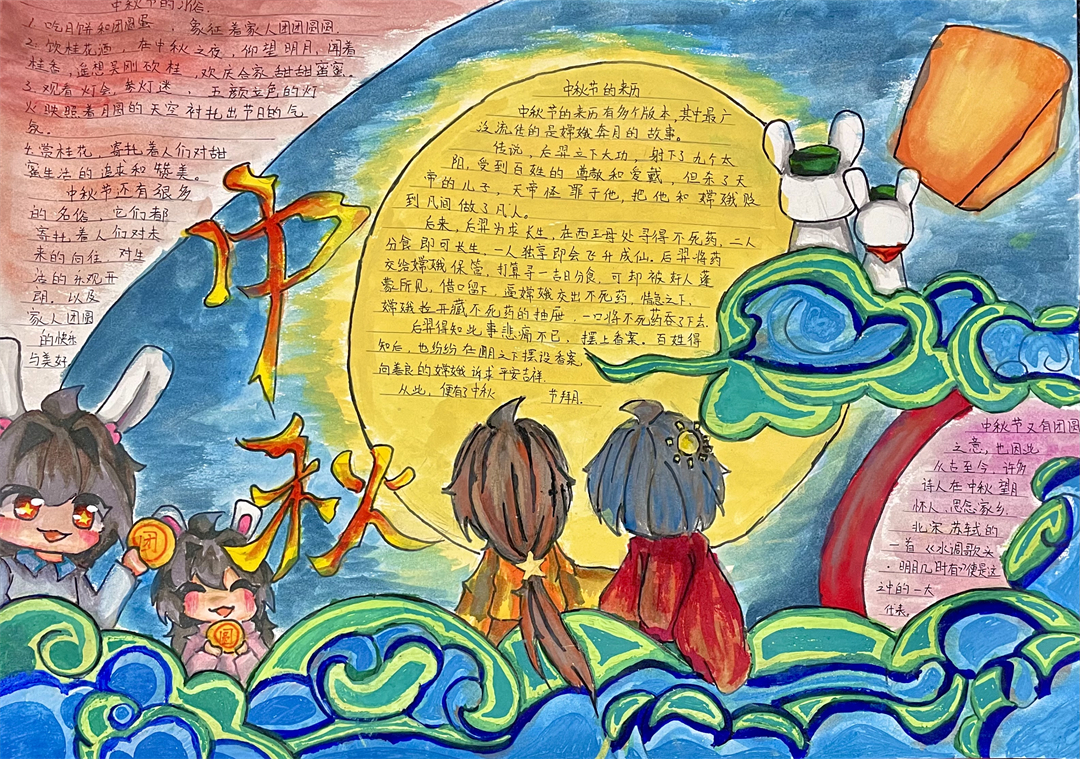 中秋节的习俗:
1. 吃月饼和团圆宴，象征着家人团团圆圆
2. 饮桂花酒，在中秋之夜，仰望明月，闻着
桂香，遥想吴刚砍桂，欢庆合家甜甜蜜蜜。
3. 观看灯会，参灯迷，五颜六色的灯
火映照着月圆的天空衬托出节日的气
氛。
4. 赏桂花，寄托着人们对甜
蜜生活的追求和
中秋节还有很多
的名俗，它们都
寄托着人们对未
来的向往 对生
活的乐观开
朗，以及
家人团圆
的快乐
与美好
中
秋
中秋节的来历
中秋节的来历有多个版本，其中最广
泛流传的是嫦娥奔月的故事。
传说，后羿立下大功，射下了九个太
阳，受到百姓的尊敬和爱戴，但杀了天
帝的儿子，天帝怪罪于他，把他和嫦娥贬
到凡间做了凡人。
后来，后羿为求长生，在西王母处寻得不死药，二人
分食即可长生，一人独享即会飞升成仙。后羿将药
交给嫦娥保管，打算寻一吉日分食，可却被奸人蓬
蒙所见，借口留下，逼嫦娥交出不死药，情急之下，
嫦娥拉开藏不死药的抽屉，一口将不死药吞了下去.
后羿得知此事悲痛不已，摆上香案。百姓得
知后，也纷纷在月之下摆设香案
向善良的嫦娥祈求平安吉祥.
从此，便有了中秋 节拜月.
中秋节又有团圆
之意，也因此
从古至今，许多
诗人在中秋望月
怀人，思念家乡.
北宋苏轼的
一首《水调歌头
·明月几时有》便是这
之中的一大
代表.
团
圆